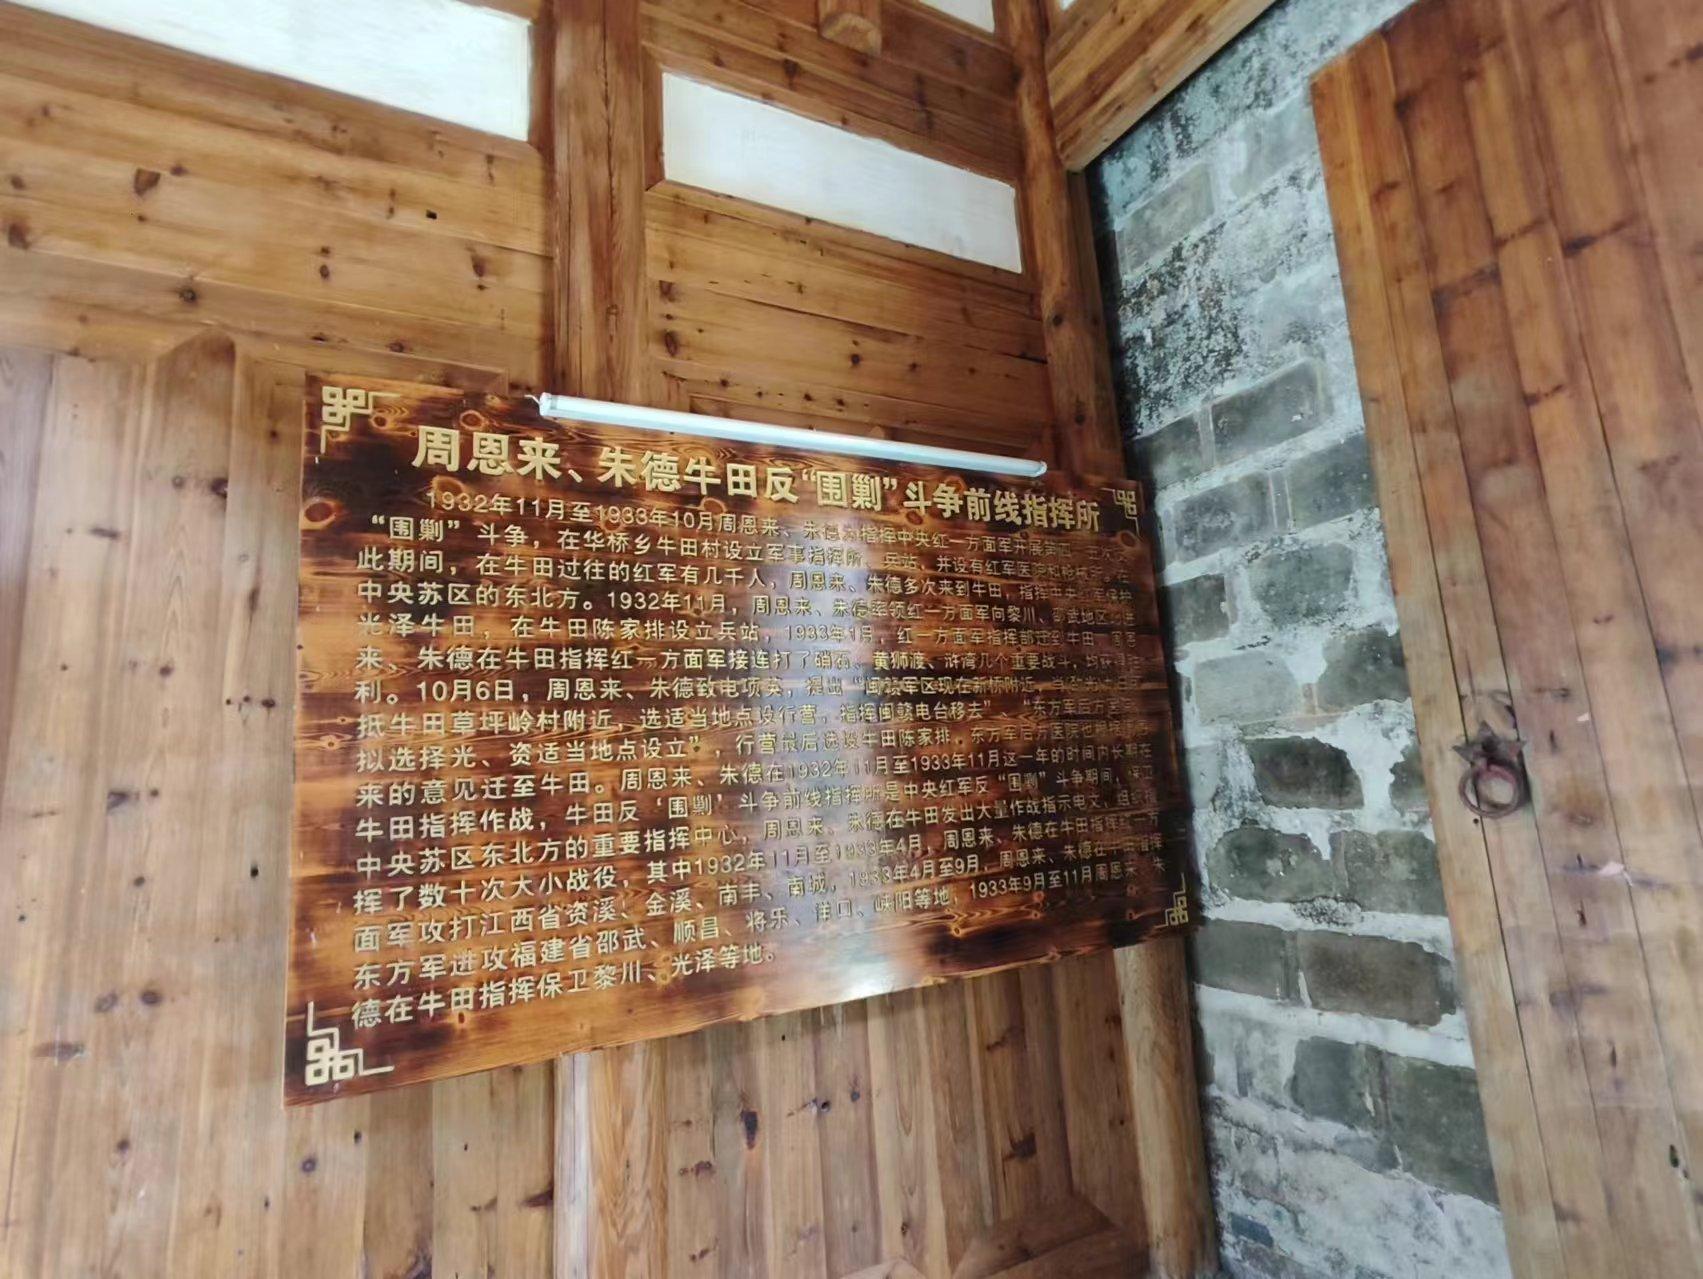 周恩来、朱德牛田反“围剿”斗争前线指挥所
1932年11月至1933年10月周恩来、朱德为指挥中央红一方面军开展第四、五次反
“围剿”斗争，在华桥乡牛田村设立军事指挥所、兵站，并设有红军医院和枪械所。在
此期间，在牛田过往的红军有几千人，周恩来、朱德多次来到牛田，指挥中央红军保护
中央苏区的东北方。1932年11月，周恩来、朱德率领红一方面军向黎川、邵武地区
光泽牛田，在牛田陈家排设立兵站，1933年1月，红一方面军指挥部迁到牛田，周恩
来、朱德在牛田指挥红一方面军接连打了硝石、黄狮渡、浒湾几个重要战斗，均获得胜
利。10月6日，周恩来、朱德致电项英，提出“闽赣军区现在新桥附近，
抵牛田草坪岭村附近，选适当地点设行营，指挥闽赣电台移去”、“东方军后方医院
拟选择光、资适当地点设立”，行营最后选设牛田陈家排。东方军后方医院也根据
来的意见迁至牛田。周恩来、朱德在1932年11月至1933年11月这一年的时间内长期在
牛田指挥作战，牛田反‘围剿’斗争前线指挥所是中央红军反“围剿”斗争期间，保卫
中央苏区东北方的重要指挥中心，周恩来、朱德在牛田发出大量作战指示电文，组织指
挥了数十次大小战役，其中1932年11月至1933年4月，周恩来、朱德在牛田指挥红一方
面军攻打江西省资溪、金溪、南丰、南城，1933年4月至9月，周恩来、朱德在牛田指挥
东方军进攻福建省邵武、顺昌、将乐、洋口、峡阳等地，1933年9月至11月周恩来、朱
德在牛田指挥保卫黎川、光泽等地。